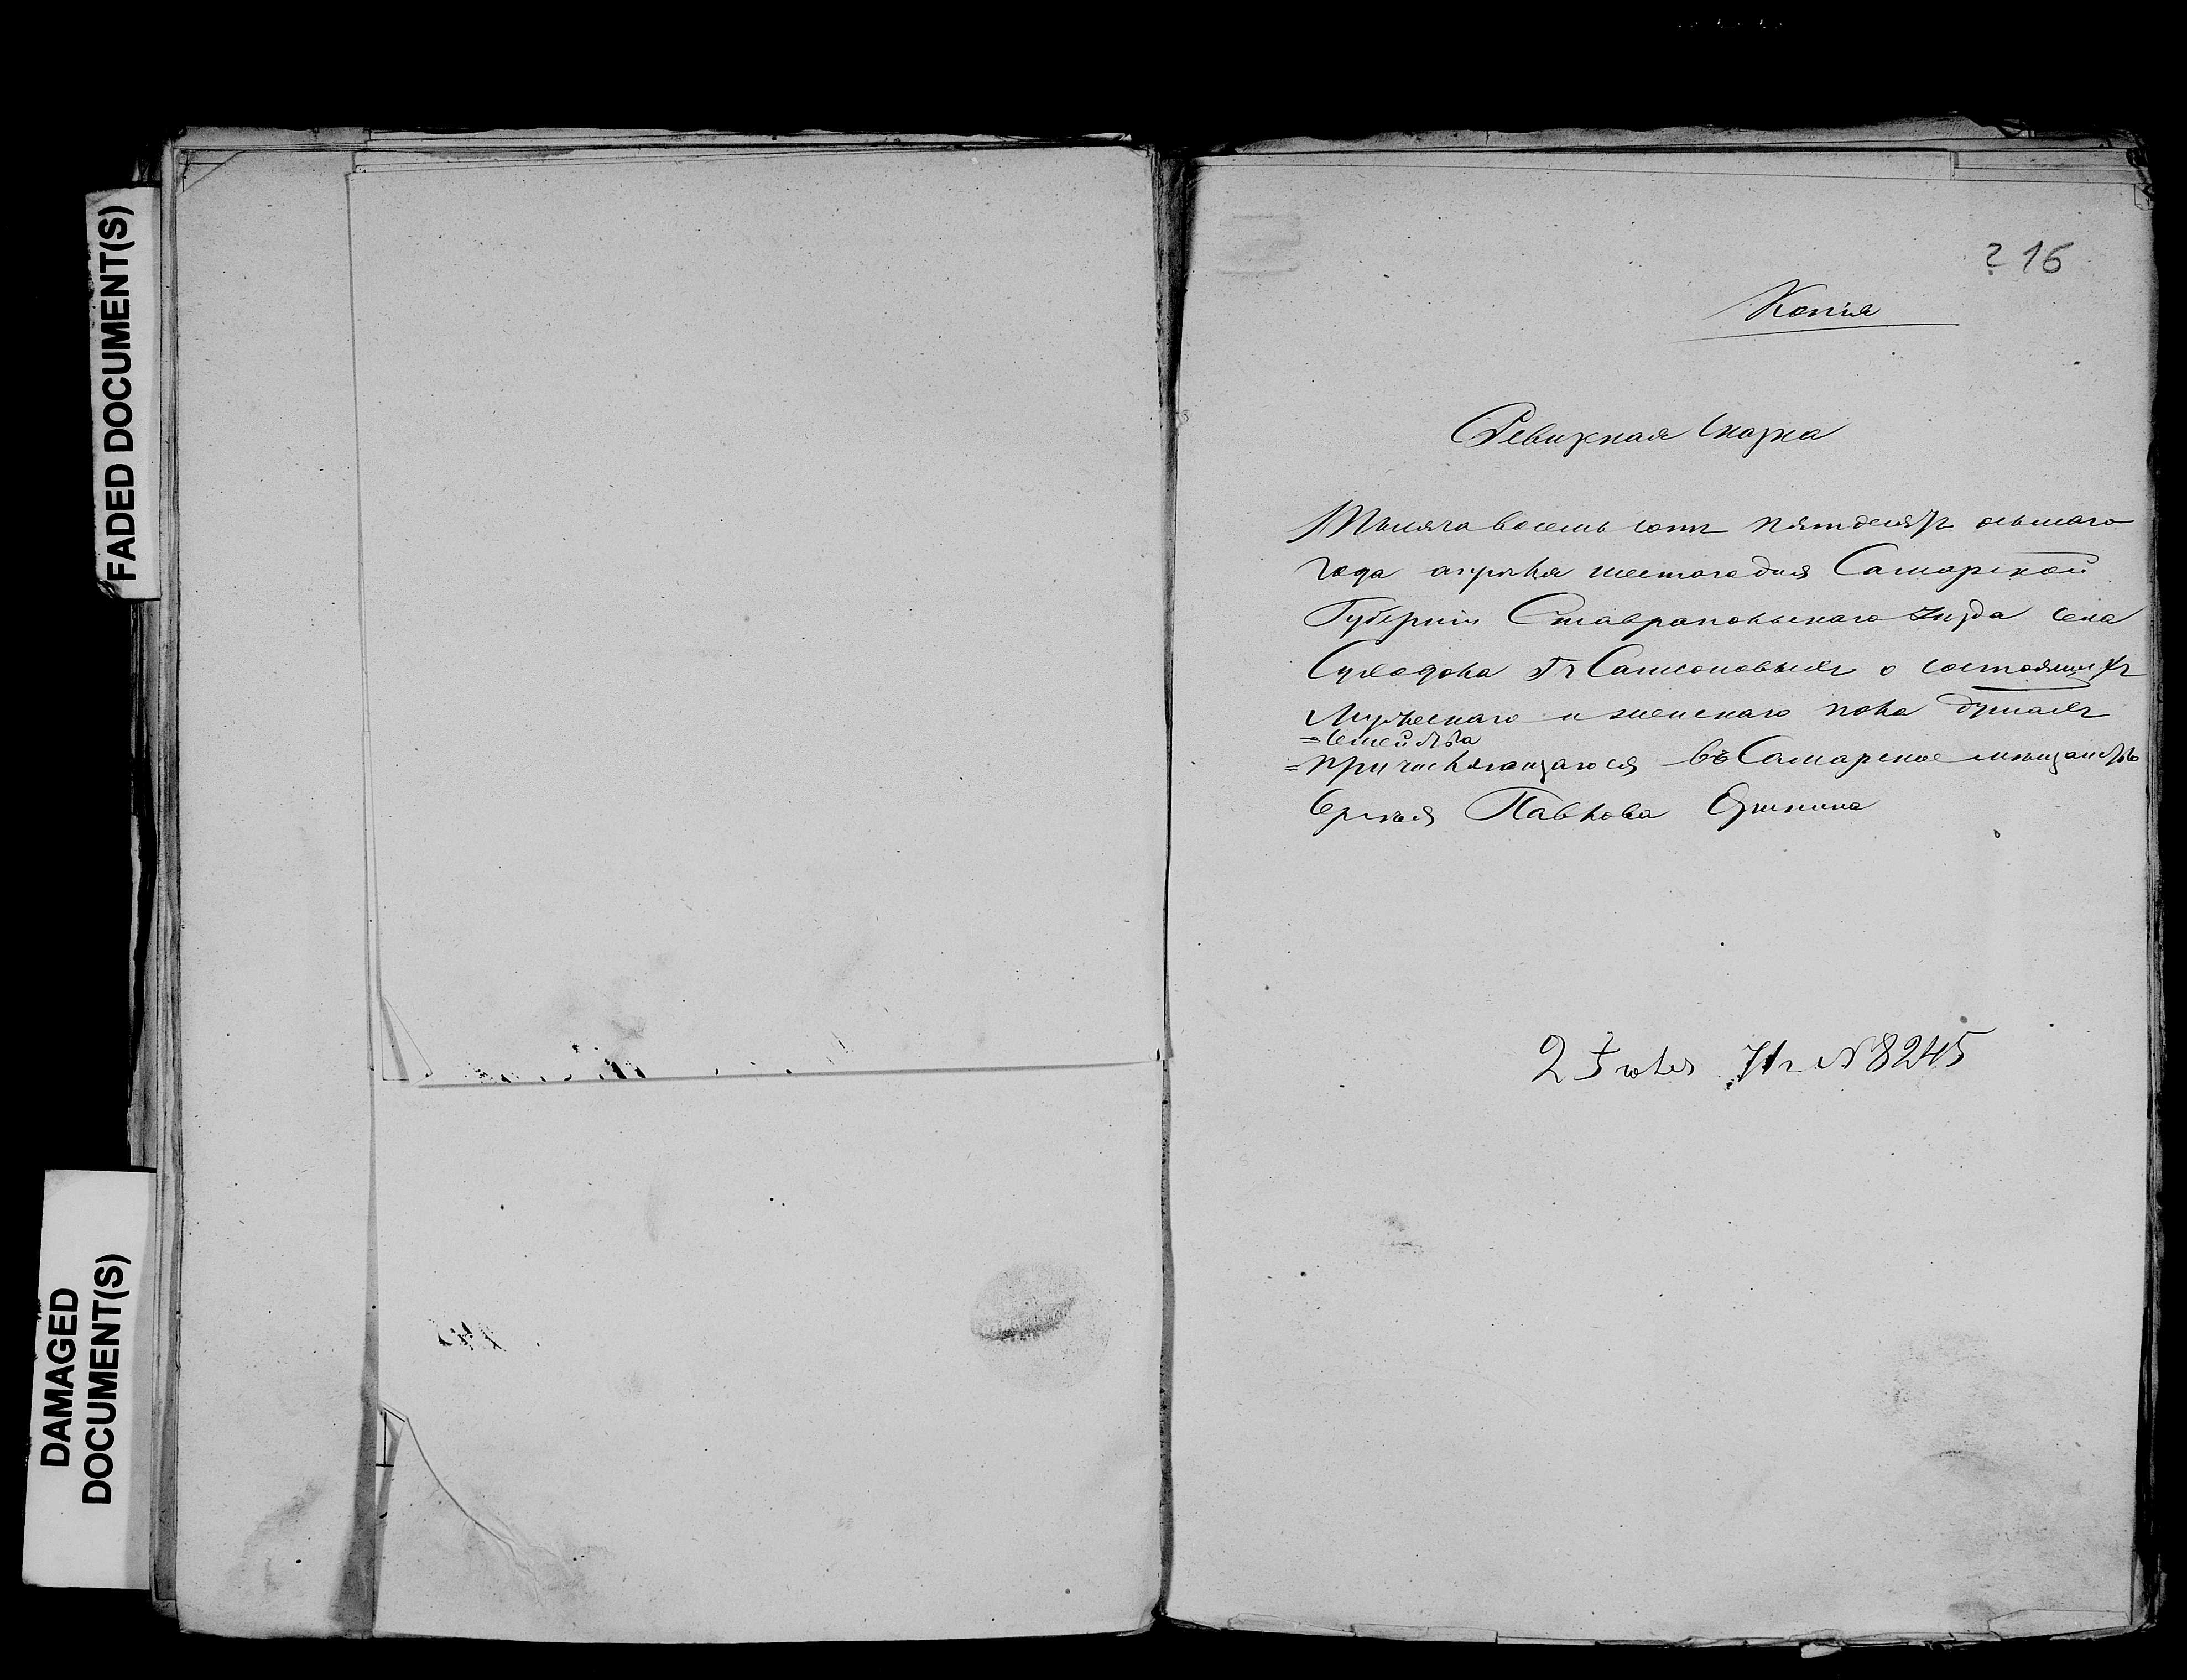 FADED DOCUMENT(S)
DAMAGED
DOCUMENT(S)
216
Копія
Ревизская Сказка
Тысяча восемь сотъ пятдесятъ осьмаго
года апрѣля шестаго дня Самарской
Губерніи Ставропольскаго уѣзда села
Суходола Гг Самсоновыхъ о состоящихъ
Мужескаго и женскаго пола душахъ
=Семейства
=причисляющагося въ Самарское мѣщанство
Сергѣя Павлова
2 Іюля № 8245